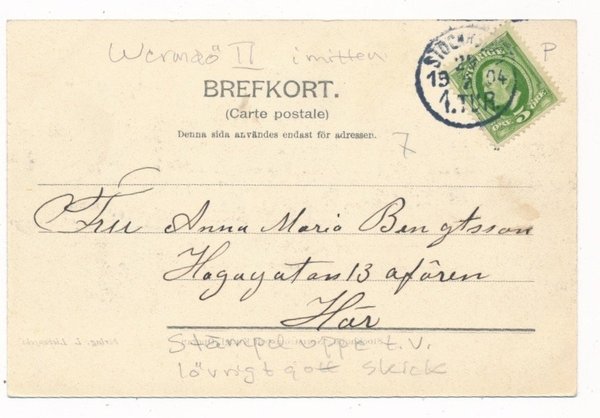 Wermdö II i mitten
P
BREFKORT.
(Carte postale)
Denna sida användes endast för adressen.
7
STOCKHOLM
29
19 04
1.TUR
SVERIGE
5
ÖRE
Fru Anna Maria Bengtsson
Hagagatan 13 afören
Här
Stämpel uppe t.v.
iövrigt gott skick